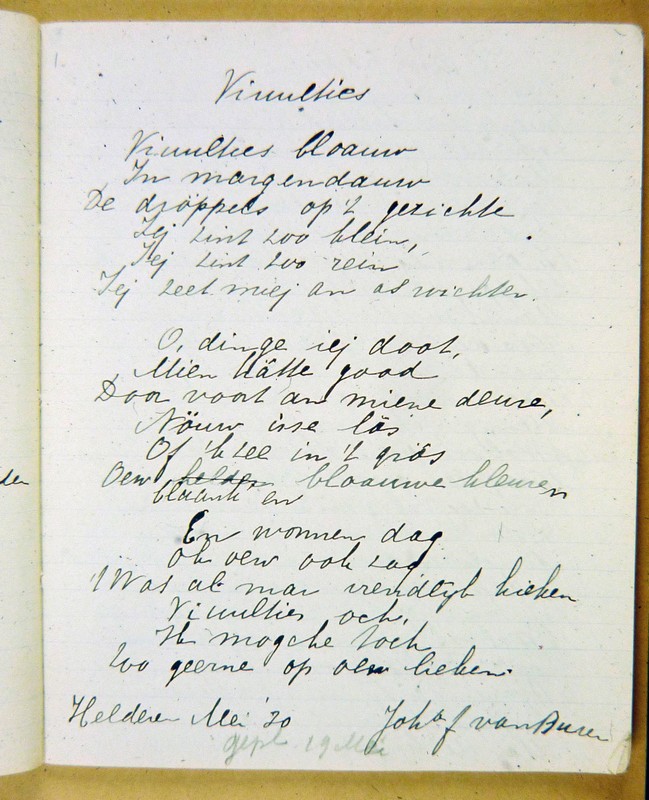 1.
Viuulties
Viuulties bloauw
In margendauw
De dröppels op 't gezichte
Iej zint zoo klein,
Iej zint zoo rein
Iej zeet miej an as wichter.
O, dinge iej doot,
Mien hätte good
Door voort an miene deure,
Nöuw isse lös
Of 'k zee in 't gräs
Oew helder bloauwe kleuren
blaank en
En wonnen dag
ok oew ook zag
't Was al mar vrendlijk kieken
Viuulties och,
Ik mogche toch
zoo geerne op oew lieken.
Helderen Mei '20
Joha f van Buren
gepl 19 Mei
den